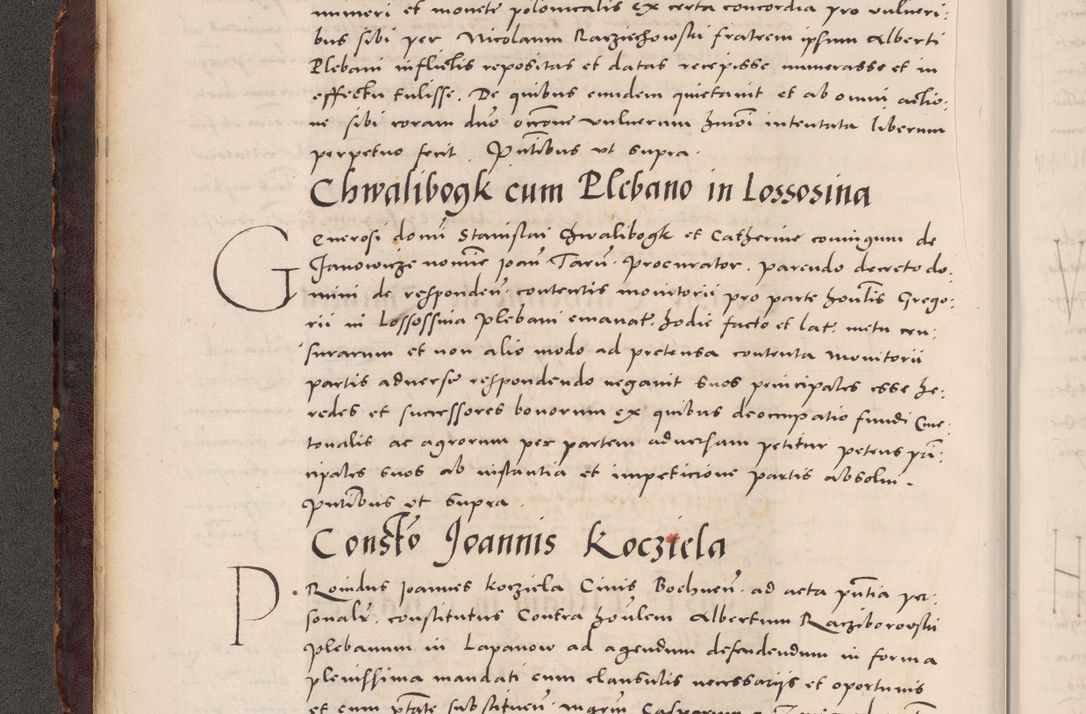 numeri et monete polonicalis ex certa concordia pro vulneri:
bus sibi per Nicolaum Racziechowski fratrem ipsum Alberti
Plebani inflictis repositas et datas recepisse numerasse et in
effectu tulisse. De quibus eundem quietavit et ab omni actio:
ne sibi coram dno occone vulnerum hmoi intentata liberum
perpetuo fecit. Pntibus ut supra.
Chwalibogk cum Plebano in Lossosina
Generosi domi Stanislai Chwalibogk et Catherine coniugum de
Janowicze nomine Joan Taru. procurator. parendo decreto do:
mini de responden. contentis monitorii pro parte honlis Grego:
rii in Lossossina plebani emanat. hodie facto et lat. metu cen:
surarum et non alio modo ad pretensa contenta monitorii
partis adverse respondendo negavit suos principales esse he:
redes et successores bonorum ex quibus deoccupatio fundi Cme:
tonalis ac agrorum per partem adversam petitur petens prin:
cipales suos ab instantia et impeticione partis absolvi.
Pntibus et supra.
Consto Joannis Kocziela
PRovidus Joannes Kocziela Civis Bochnen. ad acta pntia per:
sonalr. constitutus Contra honlem Albertum Racziborowski
plebanum in Lapanow ad agendum defendendum in forma
plenissima mandati cum clausulis necessariis et oportunis
et cum ptate substituen. mgrm Casparum